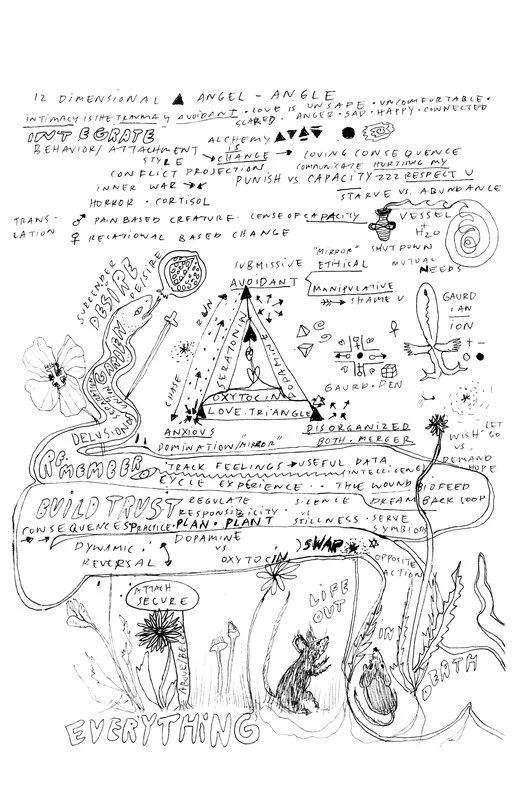 12 DIMENSIONAL ▲ ANGEL - ANGLE
INTIMACY IS THE TRAUMA AVOIDANT · LOVE IS UNSAFE · UNCOMFORTABLE ·
SCARED · ANGER · SAD · HAPPY · CONNECTED
INTEGRATE
ALCHEMY
BEHAVIOR/ATTACHMENT STYLE
IS
CHANGE → LOVING CONSEQUENCE
CONFLICT PROJECTION
COMMUNICATE HURTING MY
INNER WAR
PUNISH VS CAPACITY ZZZ RESPECT U
HORROR · CORTISOL
STARVE VS. ABUNDANCE
TRANS-
LATION
♂ PAIN BASED CREATURE · SENSE OF CAPACITY
♀ RELATIONAL BASED CHANGE
VESSEL
H2O
"MIRROR"
SHUTDOWN
MUTUAL
NEEDS
SUBMISSIVE
AVOIDANT
ETHICAL
MANIPULATIVE
SHAME U
SURRENDER
DESIRE
DESIRE
GARDEN
RUN
CHASE
SERATONIN
DOPAMINE
OXYTOCIN
LOVE · TRIANGLE
GAURD
IAN
ION
+ -
GAURD · DEN
DELUSION
ANXIOUS
DOMINATION/"MIRROR"
DISORGANIZED
BOTH · MERGER
LET
WISH GO
VS
DEMAND
HOPE
RE-MEMBER
TRACK FEELINGS → USEFUL DATA
INTELLIGENCE
CYCLE EXPERIENCE · THE WOUND BIOFEED
BUILD TRUST
REGULATE
SILENCE
DREAM BACK LOOP
RESPONSIBILITY
VS
CONSEQUENCES PRACTICE · PLAN · PLANT
STILLNESS · SERVE
SYMBIOSIS
DYNAMIC
REVERSAL
DOPAMINE
VS
OXYTOCIN
SWAP
OPPOSITE
ACTION
ATTACH
SECURE
LIFE
OUT
IN
DEATH
EVERYTHING